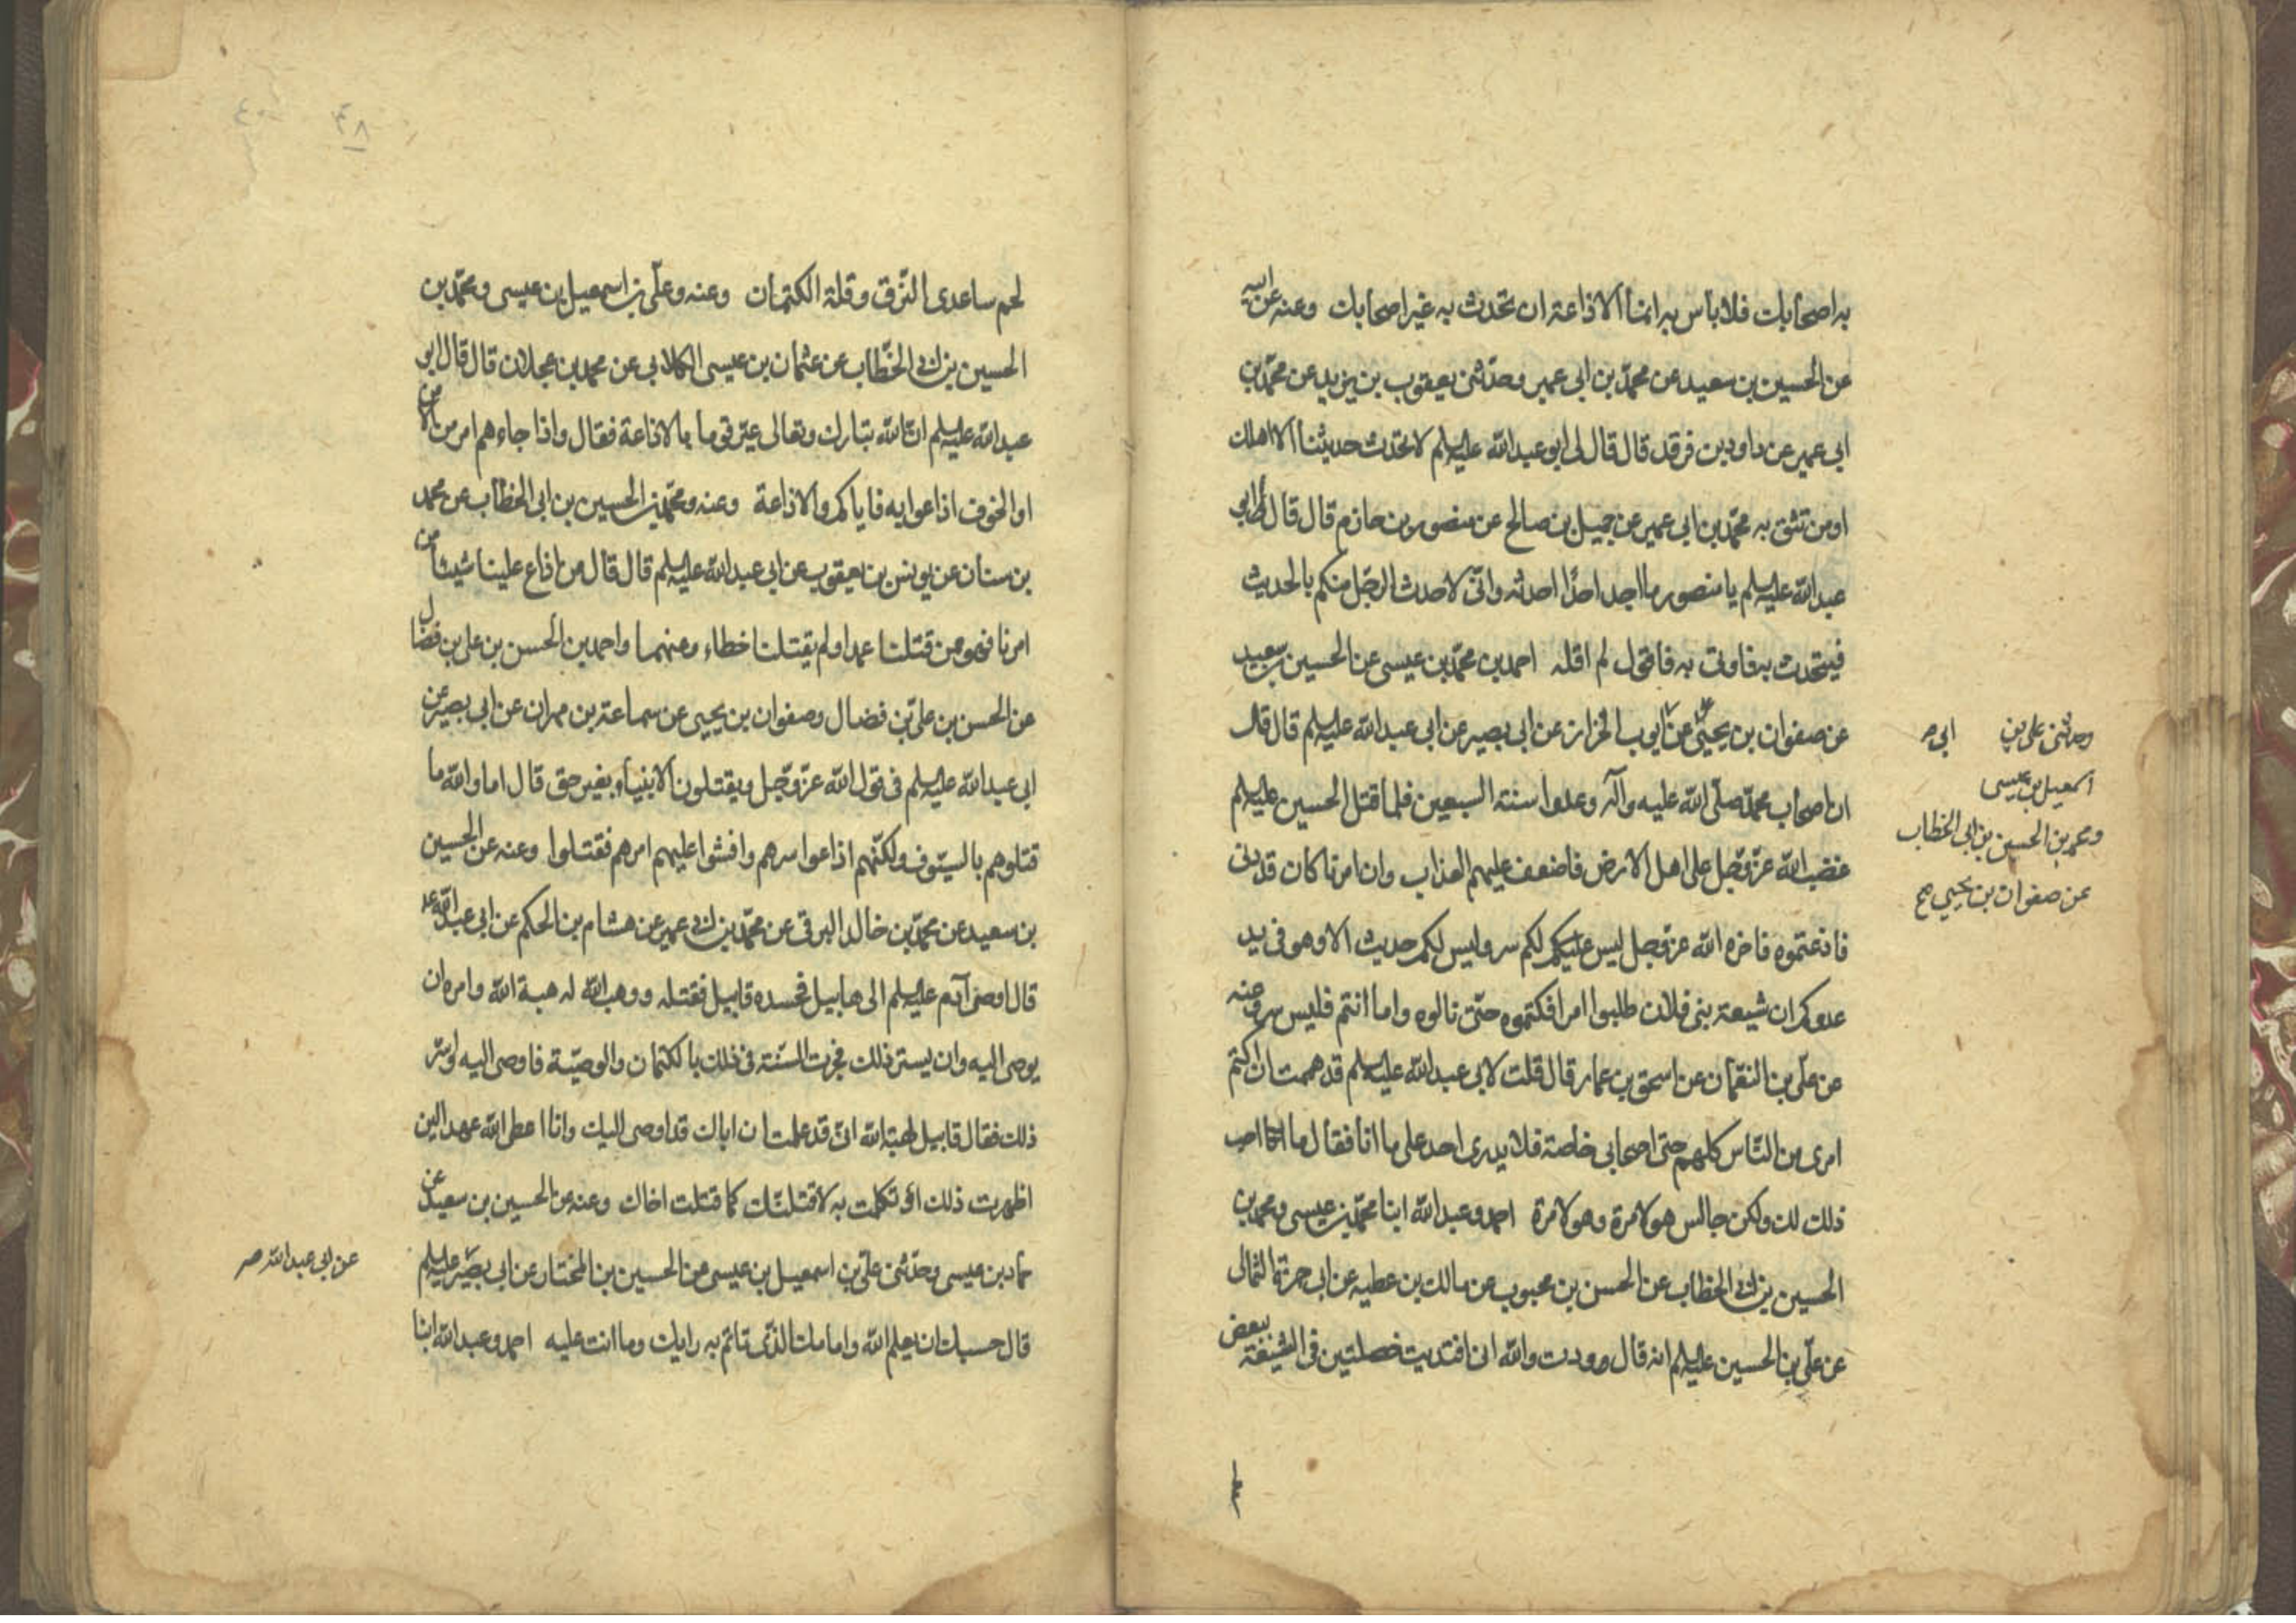 به اصحابك فلا باس به انما الاذاعة ان تحدث به غير اصحابك وعنه عن ابيه
عن الحسين بن سعيد عن محمد بن ابى عمير وحدثنى يعقوب بن يزيد عن محمد بن
ابى عمير عن داود بن فرقد قال قال لى ابو عبد الله عليه السلم لا تحدث حديثنا الا اهلك
او من تثق به محمد بن ابى عمير عن جميل بن صالح عن منصور بن حازم قال قال لى ابو
عبد الله عليه السلم يا منصور ما اجد احدا احدثه وانى لاحدث الرجل منكم بالحديث
فيتحدث به فاوتى به فاقول لم اقله احمد بن محمد بن عيسى عن الحسين بن سعيد
عن صفوان بن يحيى عن ايوب الخزاز عن ابى بصير عن ابى عبد الله عليه السلم قال قال
ان اصحاب محمد صلى الله عليه وآله وعدوا سنة السبعين فلما قتل الحسين عليه السلم
غضب الله عز وجل على اهل الارض فاضعف عليهم العذاب وان امرنا كان قد دنى
فاذعتموه فاخره الله عز وجل ليس عليكم لكم سر وليس لكم حديث الا وهو فى يد
عدوكم ان شيعة بنى فلان طلبوا امرا فكتموه حتى نالوه واما انتم فليس سر وعنه
عن على بن النعمان عن اسحق بن عمار قال قلت لابى عبد الله عليه السلم قد هممت ان اكتم
امرى من الناس كلهم حتى اصحابى خاصة فلا يدرى احد على ما انا فقال ما احب
ذلك لك ولكن جالس هولاء مرة وهولاء مرة احمد وعبد الله ابنا محمد بن عيسى ومحمد بن
الحسين بن ابى الخطاب عن الحسن بن محبوب عن مالك بن عطيه عن ابى حمزة الثمالى
عن على بن الحسين عليه السلم انه قال وددت والله انى افتديت خصلتين فى الشيعة ببعض
وحدثنى على بن
ابى
اسمعيل بن عيسى
ومحمد بن الحسين بن ابى الخطاب
عن صفوان بن يحيى صح
لحم ساعدى النزق وقلة الكتمان وعنه وعلى بن اسمعيل بن عيسى ومحمد بن
الحسين بن ابى الخطاب عن عثمان بن عيسى الكلابى عن محمد بن عجلان قال قال ابو
عبد الله عليه السلم ان الله تبارك وتعالى عير قوما بالاذاعة فقال واذا جاءهم امر من الامن
او الخوف اذاعوا به فاياكم والاذاعة وعنه ومحمد بن الحسين بن ابى الخطاب عن محمد
بن سنان عن يونس بن يعقوب عن ابى عبد الله عليه السلم قال قال من اذاع علينا شيئا من
امرنا فهو من قتلنا عمدا ولم يقتلنا خطاء وعنهما واحمد بن الحسن بن على بن فضال
عن الحسن بن على بن فضال وصفوان بن يحيى عن سماعة بن مهران عن ابى بصير عن
ابى عبد الله عليه السلم فى قول الله عز وجل ويقتلون الانبياء بغير حق قال اما والله ما
قتلوهم بالسيوف ولكنهم اذاعوا سرهم وافشوا عليهم امرهم فقتلوا وعنه عن الحسين
بن سعيد عن محمد بن خالد البرقى عن محمد بن ابى عمير عن هشام بن الحكم عن ابى عبد الله ع
قال اوصى آدم عليه السلم الى هابيل فحسده قابيل فقتله ووهب الله له هبة الله وامره ان
يوصى اليه وان يستر ذلك فجرت السنة فى ذلك بالكتمان والوصية فاوصى اليه وستر
ذلك فقال قابيل لهبة الله انى قد علمت ان اباك قد اوصى اليك وانا اعطى الله عهدا لئن
اظهرت ذلك او تكلمت به لاقتلنك كما قتلت اخاك وعنه عن الحسين بن سعيد عن
حماد بن عيسى وحدثنى على بن اسمعيل بن عيسى عن الحسين بن المختار عن ابى بصير عليه السلم
قال حسبك ان يعلم الله وامامك الذى تاتم به رايك وما انت عليه احمد وعبد الله ابنا
عن ابى عبد الله صح
٣٨
٤٠